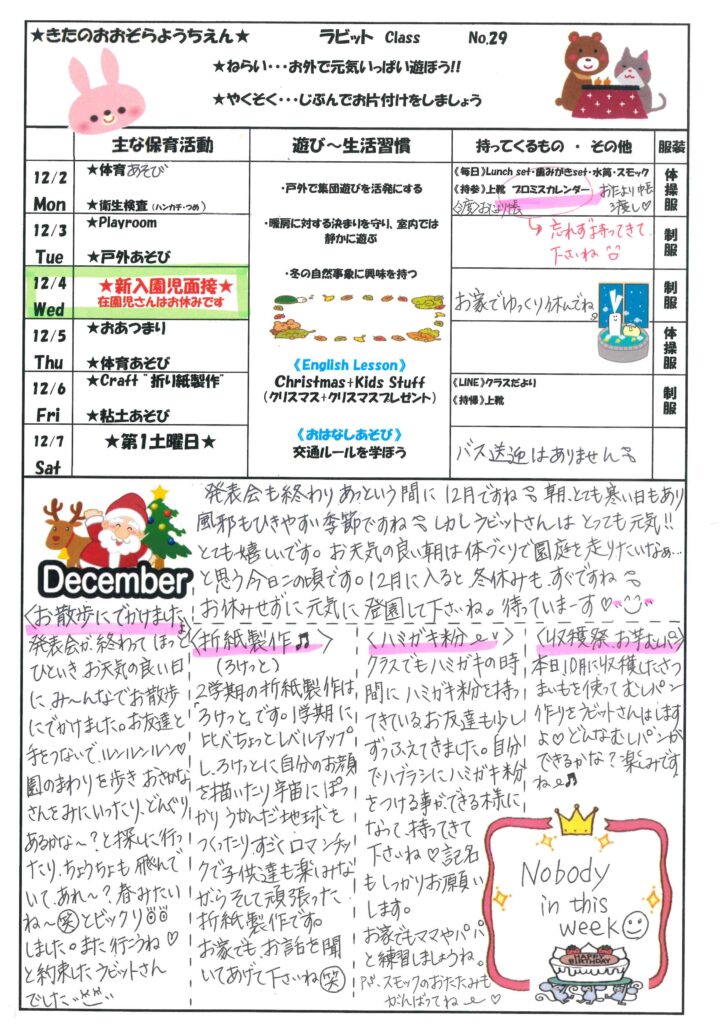 ★きたのおおぞらようちえん★ ラビット Class No.29
★ねらい・・・お外で元気いっぱい遊ぼう!!
★やくそく・・・じぶんでお片付けをしましょう
主な保育活動 遊び～生活習慣 持ってくるもの ・ その他 服装
12/2 Mon
★体育あそび
★衛生検査(ハンカチ・つめ)
12/3 Tue
★Playroom
★戸外あそび
12/4 Wed
★新入園児面接★
在園児さんはお休みです
12/5 Thu
★おあつまり
★体育あそび
12/6 Fri
★Craft "折り紙製作"
★粘土あそび
12/7 Sat
★第1土曜日★
・戸外で集団遊びを活発にする
・暖房に対する決まりを守り、室内では
静かに遊ぶ
・冬の自然事象に興味を持つ
《English Lesson》
Christmas+Kids Stuff
(クリスマス+クリスマスプレゼント)
《おはなしあそび》
交通ルールを学ぼう
《毎日》Lunch set・歯みがきset・水筒・スモック
《持参》上靴 プロミスカレンダー
おたより帳
渡し♡
→忘れず持ってきて
下さいね
お家でゆっくり休んでね。
《LINE》クラスだより
《持帰》上靴
バス送迎はありません
体操服
制服
制服
体操服
制服
December
発表会も終わりあっという間に12月ですね 朝、とても寒い日もあり
風邪もひきやすい季節ですね しかしラビットさんは とっても元気!!
とても嬉しいです。お天気の良い朝は体づくりで園庭を走りたいなぁ…
と思う今日この頃です。12月に入ると冬休みも、すぐですね
お休みせずに元気に登園して下さいね。待っていまーす♡
〈お散歩にでかけましたよ〉
発表会が、終わって ほっと
ひといき お天気の良い日
に み〜んなでお散歩
にでかけました。お友達と
手をつないで、ルンルンルン♡
園のまわりを歩き おさかな
さんをみにいったり、どんぐり
あるかな〜?と探しに行っ
たり、ちょうちょも 飛んで
いて、あれ〜? 春みたい
ね〜(笑)とビックリ
しました。また行こうね♡
と約束したラビットさん
でした
〈折紙製作♫〉
(ろけっと)
2学期の折紙製作は
"ろけっと"です。1学期に
比べちょっとレベルアップ
し、ろけっとに自分のお顔
を描いたり宇宙にぽっ
かりうかんだ地球を
つくったりすごくロマンチッ
クで子供達も楽しみな
がらそして頑張った
折紙製作です。
お家でもお話を聞
いてあげて下さいね(笑)
〈ハミガキ粉〉
クラスでもハミガキの時
間にハミガキ粉を持っ
てきているお友達も少し
ずつふえてきました。自分
でハブラシにハミガキ粉
をつける事ができる様に
なって、持ってきて
下さいね♡記名
もしっかりお願い
します。
お家でもママやパパ
と練習しましょうね。
P.S. スモックのおたたみも
がんばってね♡
〈収穫祭、お芋むしパン〉
本日、10月に収穫したさつ
まいもを使って むしパン
作りをラビットさんはします
よ♡どんなむしパンが
できるかな?楽しみです
ね♫
Nobody
in this
week
HAPPY
BIRTHDAY